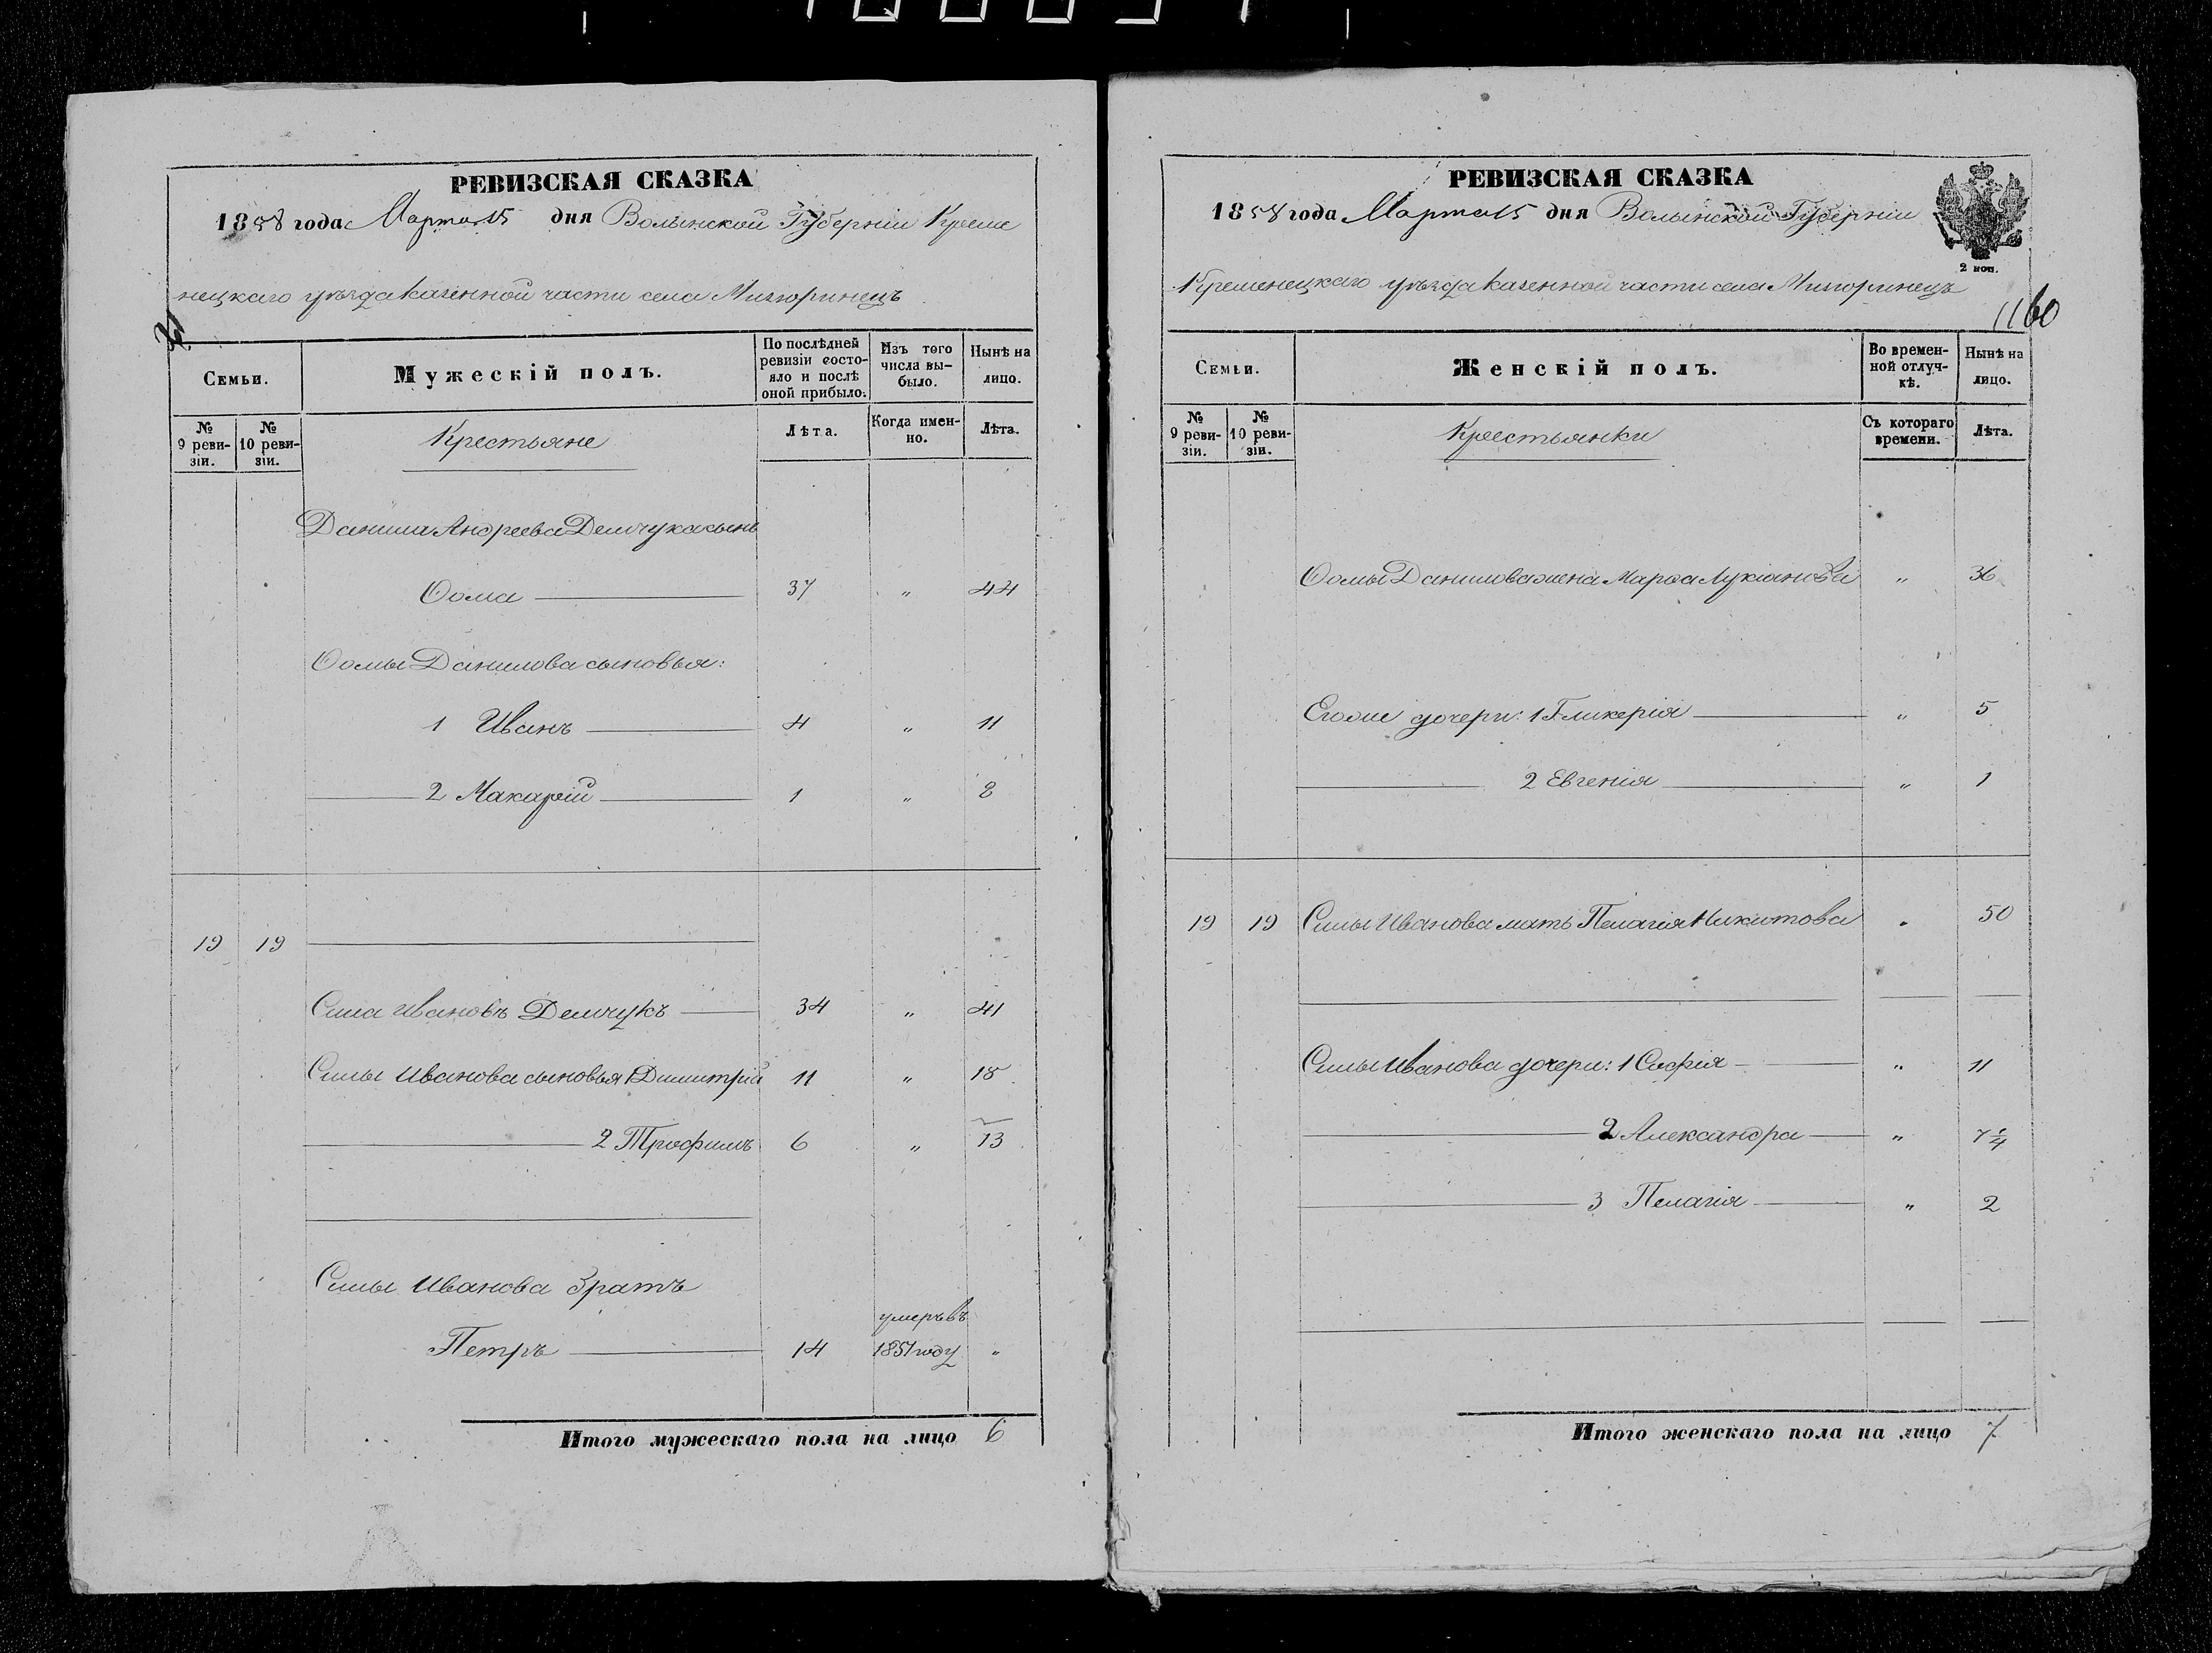 РЕВИЗСКАЯ СКАЗКА
1858 года Марта 15 дня Волынской Губерніи Креме
нецкаго уѣзда казенной части села Мизюринецъ
Семьи.
Мужескій полъ.
По послѣдней ревизіи состояло и послѣ оной прибыло.
Изъ того числа выбыло.
Нынѣ на лицо.
№ 9 ревизіи.
№ 10 ревизіи.
Крестьяне
Лѣта.
Когда именно.
Лѣта.
Данила Андреева Демчука сынъ
Ѳома 37 " 44
Ѳомы Данилова сыновья:
1 Иванъ 4 " 11
2 Макарій 1 " 8
19 19
Сила Ивановъ Демчукъ 34 " 41
Силы Иванова сыновья 1 Димитрій 11 " 18
2 Трофимъ 6 " 13
Силы Иванова братъ
умеръ въ
Петръ 14 1851 году "
Итого мужескаго пола на лицо 6
РЕВИЗСКАЯ СКАЗКА
1858 года Марта 15 дня Волынской Губерніи
2 коп.
Кременецкаго уѣзда казенной части села Мизюринецъ
60
Семьи.
Женскій полъ.
Во временной отлучкѣ.
Нынѣ на лицо.
№ 9 ревизіи.
№ 10 ревизіи.
Крестьянки
Съ котораго времени.
Лѣта.
Ѳомы Данилова жена Марѳа Лукіанова " 36
Егоже дочери: 1 Гликерія " 5
2 Евгенія " 1
19 19 Силы Иванова мать Пелагія Никитова " 50
Силы Иванова дочери: 1 Софія " 11
2 Александра " 7 1/4
3 Пелагія " 2
Итого женскаго пола на лицо 7